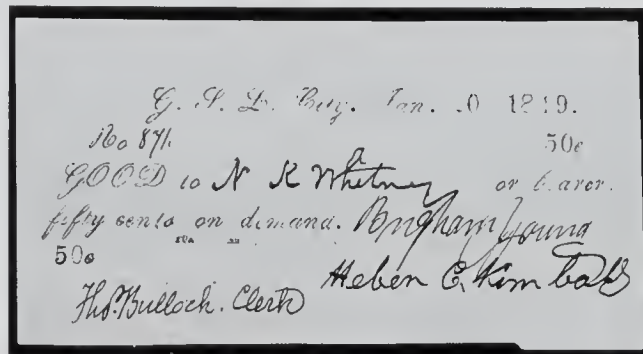 G. S. L. City. Jan. 20 1849.
No 871.
50c
GOOD to N K Whitney or bearer.
fifty cents on demand. Brigham Young
50c
Heber C. Kimball
Thos. Bullock. Clerk